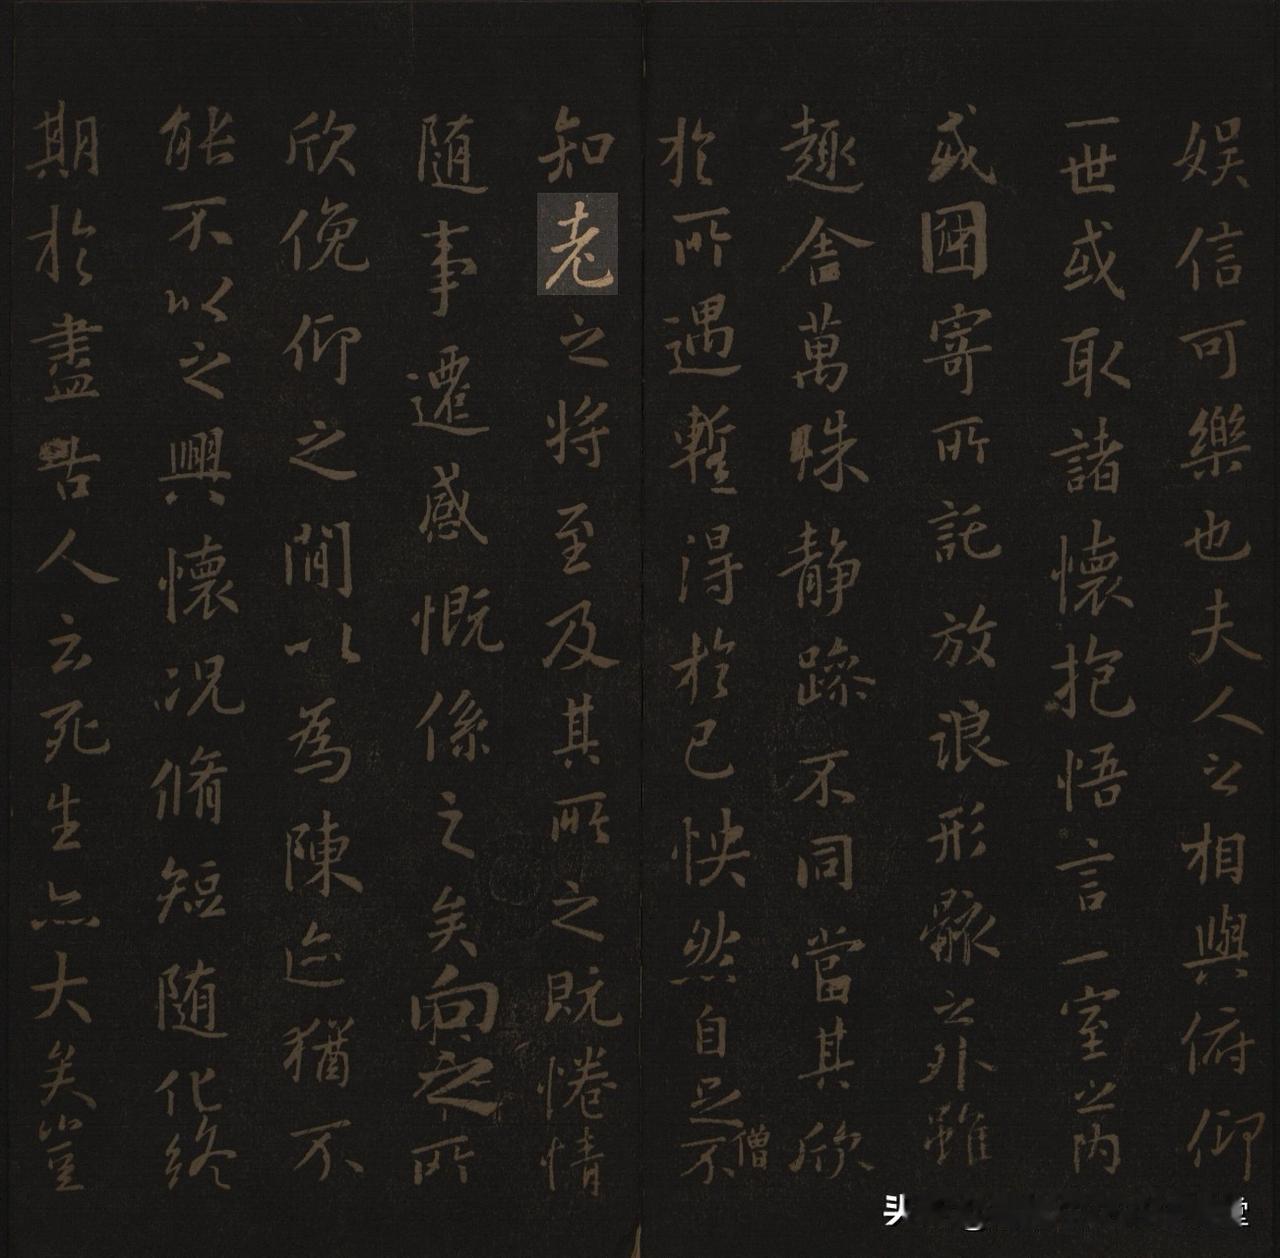 娱信可樂也夫人之相與俯仰
一世或取諸懷抱悟言一室之內
或因寄所託放浪形骸之外雖
趣舍萬殊静躁不同當其欣
於所遇暫得於己怏然自足不
僧
知老之将至及其所之既惓情
随事遷感慨係之矣向之所
欣俛仰之閒以為陳迹猶不
能不以之興懷况脩短随化終
期於盡古人云死生亦大矣豈
头